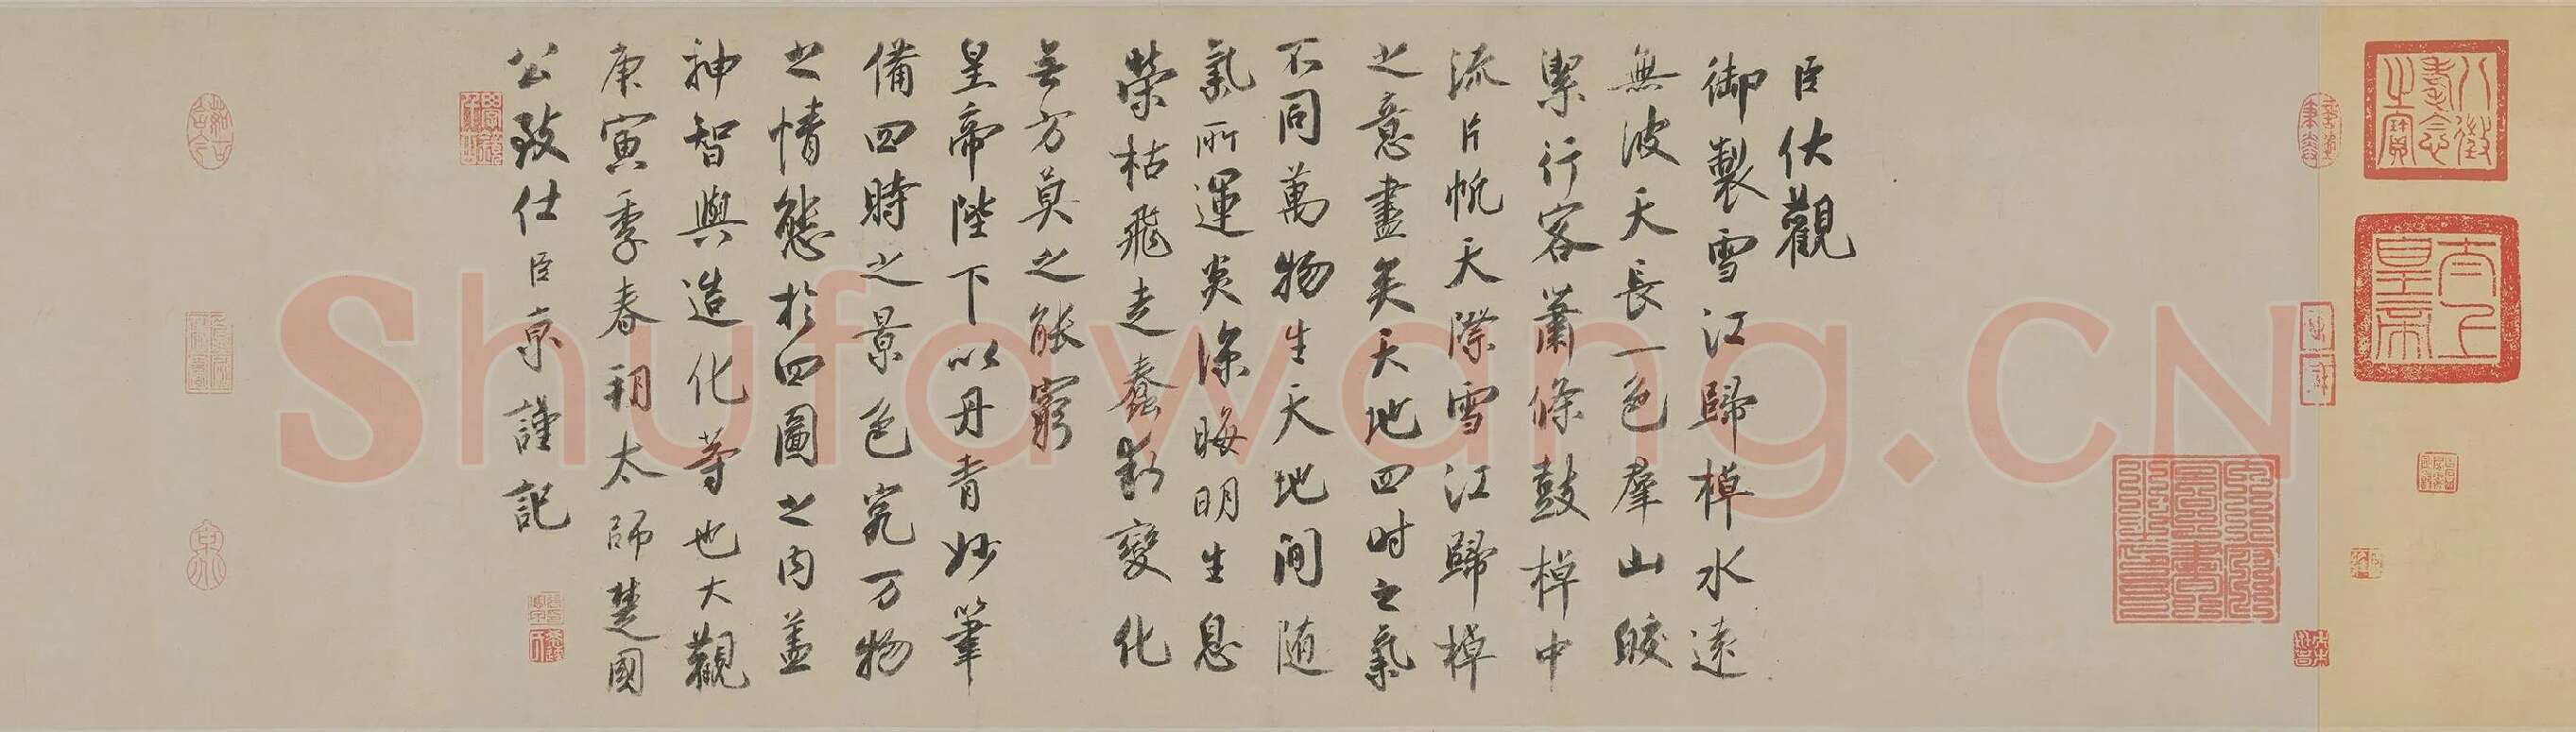 臣伏觀
御製雪江歸棹水遠
無波天長一色羣山皎
潔行客蕭條鼓棹中
流片帆天際雪江歸棹
之意盡矣天地四时之氣
不同萬物生天地間随
氣所運炎涼晦明生息
榮枯飛走蠢動變化
無方莫之能窮
皇帝陛下以丹青妙筆
備四時之景色究万物
之情態於四圖之内盖
神智與造化等也大觀
庚寅季春朔太師楚國
公致仕臣京謹記
八徵耄念之寶
太上皇帝
Shufawang.CN